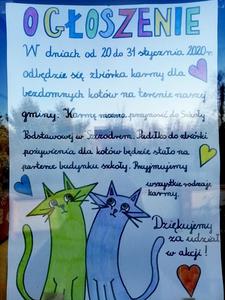 OGŁOSZENIE
W dniach od 20 do 31 stycznia 2020r.
odbędzie się zbiórka karmy dla
bezdomnych kotów na terenie naszej
gminy. Karmę można przynosić do Szkoły
Podstawowej w Pudełko do zbiórki
pożywienia dla kotów będzie stało na
parterze budynku szkoły. Przyjmujemy
wszystkie rodzaje
karmy.
Dziękujemy
za udział
w akcji!